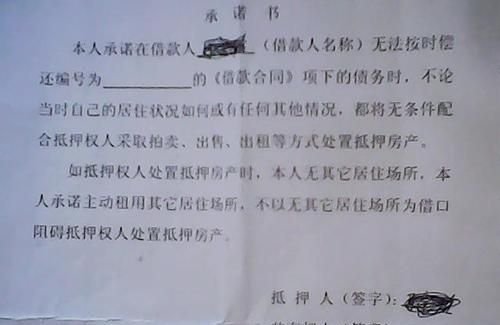 承诺书
本人承诺在借款人（借款人名称）无法按时偿
还编号为__________的《借款合同》项下的债务时，不论
当时自己的居住状况如何或有任何其他情况，都将无条件配
合抵押权人采取拍卖、出售、出租等方式处置抵押房产。
如抵押权人处置抵押房产时，本人无其它居住场所，本
人承诺主动租用其它居住场所，不以无其它居住场所为借口
阻碍抵押权人处置抵押房产。
抵押人（签字）：